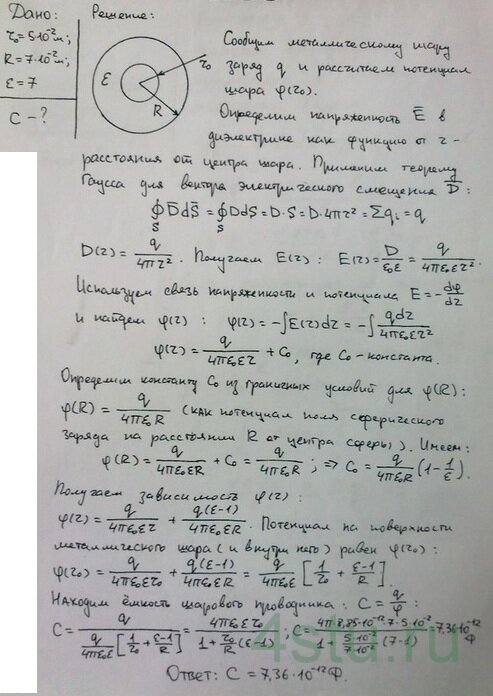 Дано: Решение:
r₀=5·10⁻²м;
R=7·10⁻²м;
ε=7
C-?
ε R r₀
Сообщим металлическому шару
заряд q и рассчитаем потенциал
шара φ(r₀).
Определим напряженность E̅ в
диэлектрике как функцию от r-
расстояния от центра шара. Применим теорему
Гаусса для вектора электрического смещения D̅:
∮_S D̅dS̅ = ∮_S DdS = D·S = D·4πr² = Σqᵢ = q
D(r) = q/(4πr²). Получаем E(r): E(r) = D/(ε₀ε) = q/(4πε₀εr²)
Используем связь напряженности и потенциала E = -dφ/dr
и найдем φ(r): φ(r) = -∫E(r)dr = -∫qdr/(4πε₀εr²)
φ(r) = q/(4πε₀εr) + C₀, где C₀-константа.
Определим константу C₀ из граничных условий для φ(R):
φ(R) = q/(4πε₀R) (как потенциал поля сферического
заряда на расстоянии R от центра сферы). Имеем:
φ(R) = q/(4πε₀εR) + C₀ = q/(4πε₀R); ⇒ C₀ = q/(4πε₀R)(1-1/ε).
Получаем зависимость φ(r):
φ(r) = q/(4πε₀εr) + q(ε-1)/(4πε₀εR). Потенциал на поверхности
металлического шара (и внутри него) равен φ(r₀):
φ(r₀) = q/(4πε₀εr₀) + q(ε-1)/(4πε₀εR) = q/(4πε₀ε)[1/r₀ + (ε-1)/R].
Находим ёмкость шарового проводника: C = q/φ:
C = q/(q/(4πε₀ε)[1/r₀ + (ε-1)/R]) = 4πε₀εr₀/(1 + r₀/R(ε-1)); C = 4π·8,85·10⁻¹²·7·5·10⁻²/(1 + 5·10⁻²/(7·10⁻²)(7-1)) = 7,36·10⁻¹²Ф
Ответ: C = 7,36·10⁻¹²Ф.
4stu.ru